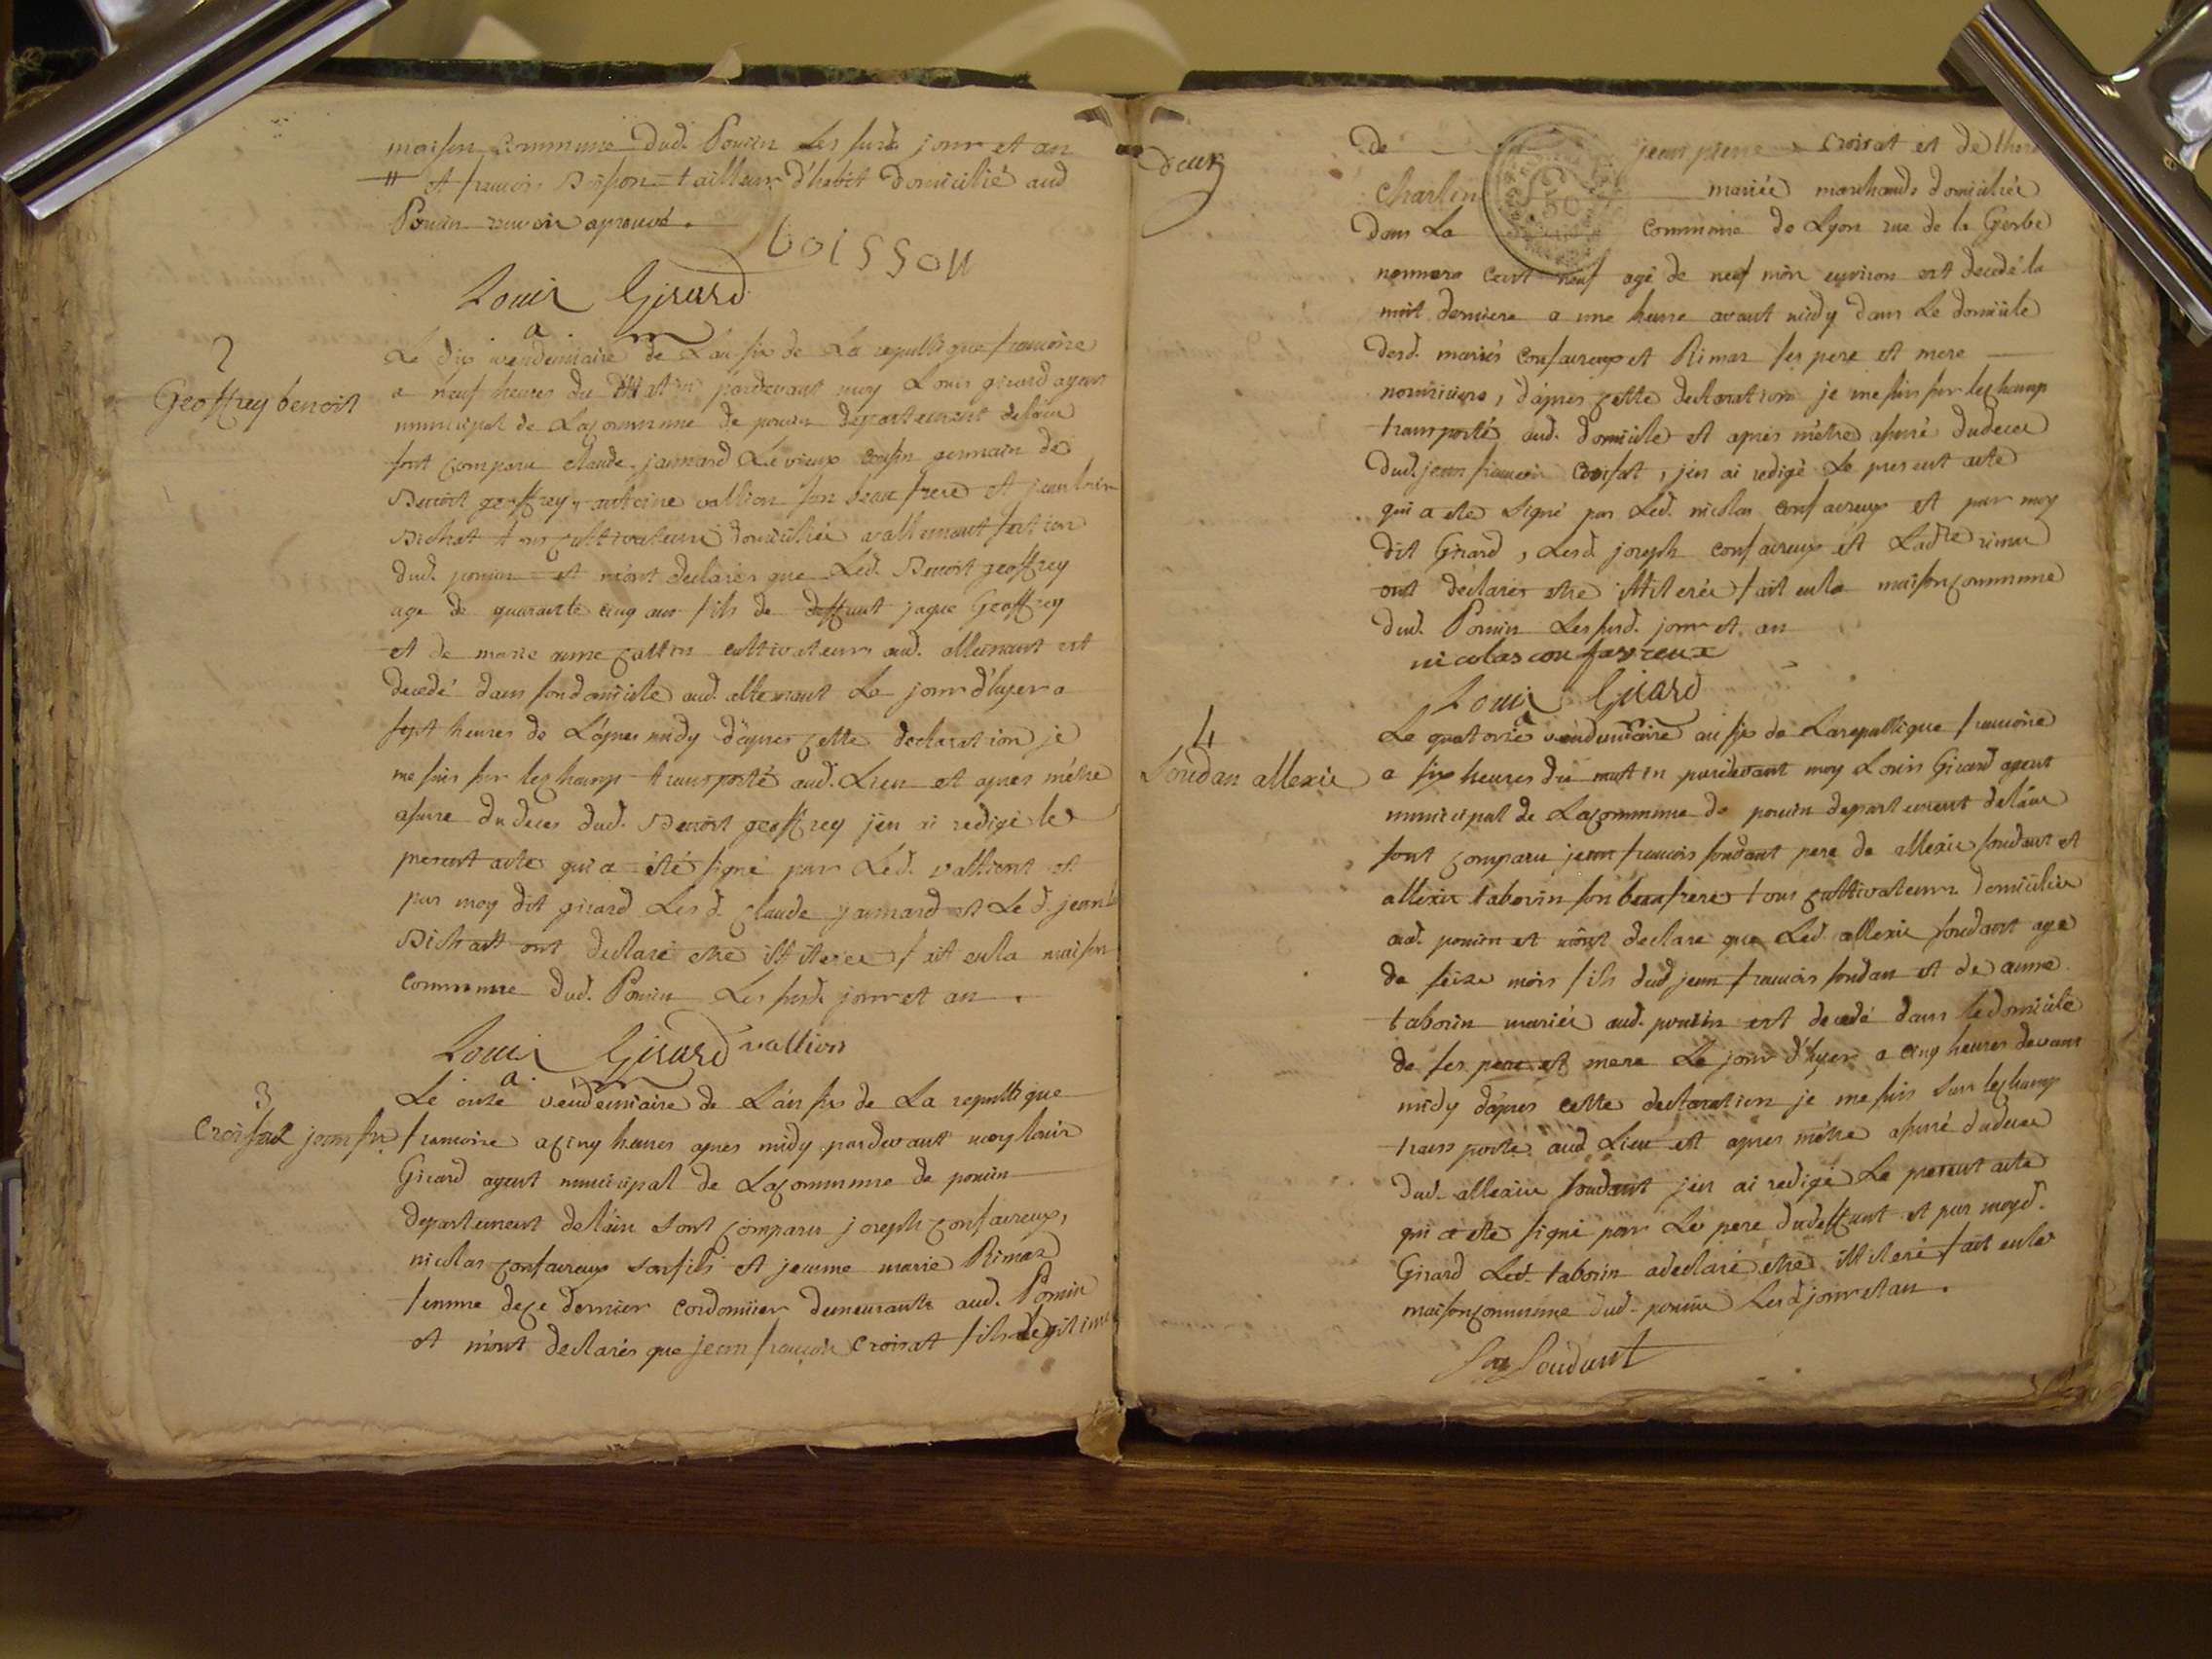 maison commune dud. Poncin Les susd. jour et an
" et francois Boisson tailleur d'habit domicilié aud
Poncin renvoie aprouvé.
boisson
Louis Girard
a
2
Geoffrey benoit
Le dix vendemiaire de Lan six de La republique francoise
a neuf heures du matin pardevant moy Louis girard agent
municipal de Lacommune de poncin departement delain
sont comparu claude jannard Le vieux cousin germain de
Benoit geoffrey, antoine vallion son beau frere et jean
Bichat tous cultivateurs domiciliés a allemant section
dud. poncin et m'ont declarés que Led. Benoit geoffrey
age de quarante cinq ans fils de deffunt jaque Geoffrey
et de marie anne cultivateurs aud. allemant est
decedé dans son domicile aud. allemant Le jour d'hyer a
sept heures de L'apres midy d'apres cette declaration je
me suis sur lechamp transporté aud. Lieu et apres m'etre
assure du deces dud. Benoit geoffrey j'en ai redigé le
present acte qui a été signé par Led. valliont et
par moy dit girard Les d. claude jannard et Le d. jean
Bichatt ont declaré etre illiterée fait enla maison
commune dud. Poncin Les susd. jour et an.
Louis Girard vallion
a
3
Croissat jean fr.
Le onze vendemiaire de L'an six de La republique
francoise a cinq heures apres midy pardevant moy louis
Girard agent municipal de Lacommune de poncin
departement delain sont comparu joseph confavreux,
nicolas confavreux son fils et jeanne marie Rimaz
femme de ce dernier cordonnier demeurants aud. Poncin
et m'ont declarés que jean françois croisat fils Legitime
deux
de jean pierre croisat et de
charlin mariés marchands domiciliés
dans La commune de Lyon rue de la Gerbe
nommero cent neuf agé de neuf mois environ est decedé la
nuit derniere a une heure avant midy dans Le domicile
desd. mariés confavreux et Rimaz ses pere et mere
nouriciers, d'apres cette declaration je me suis sur lechamp
transporté aud. domicile et apres m'etre assuré dudeces
dud. jean francois croisat, j'en ai redigé Le present acte
qui a ete signé par Led. nicolas confavreux et par moy
dit Girard, Lesd. joseph confavreux et Ladte rimaz
ont déclarés etre illiterés fait enla maison commune
dud. Poncin Les susd. jour et an
nicolas confavreux
Louis Girard
a
4
Soudan allexie
Le quatorze vendemiaire an six de Larepublique francoise
a six heures du matin pardevant moy Louis Girard agent
municipal de Lacommune de poncin departement delain
sont comparu jean francois soudant pere de allexie soudant et
allexie taborin son beaufrere tous cultivateurs domiciliés
aud. poncin et m'ont declare que Led. allexie soudant age
de seize mois fils dud jean francois soudan et de anne
taborin mariés aud. poncin est decedé dans le domicile
de ses pere et mere Le jour d'hyer a cinq heures devant
midy d'apres cette declaration je me suis sur lechamp
transporte aud Lieu et apres m'etre assuré dudeces
dud. allexie soudant j'en ai redigé Le present acte
qui a ete signé par Le pere dudeffunt et par moyd.
Girard Led. taborin adeclaré etre illiteré fait enla
maison commune dud. poncin Les d jour et an.
Soudant